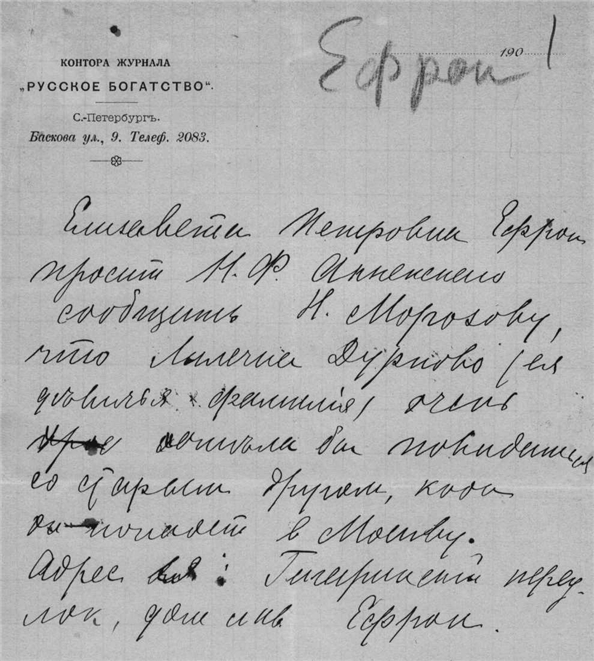 КОНТОРА ЖУРНАЛА
„РУССКОЕ БОГАТСТВО“.
С.-Петербургъ.
Баскова ул., 9. Телеф. 2083.
190 1
Ефрон
Елизавета Петровна Ефрон
просит Н. Ф. Анненского
сообщить Н. Морозову,
что Лилечка Дурново (ея
дѣвичья фамилія) очень
хотѣла бы повидаться
со старым другом, когда
он попадет в Москву.
Адрес ея: Гагаринскій переу-
лок, дом Ефрон.